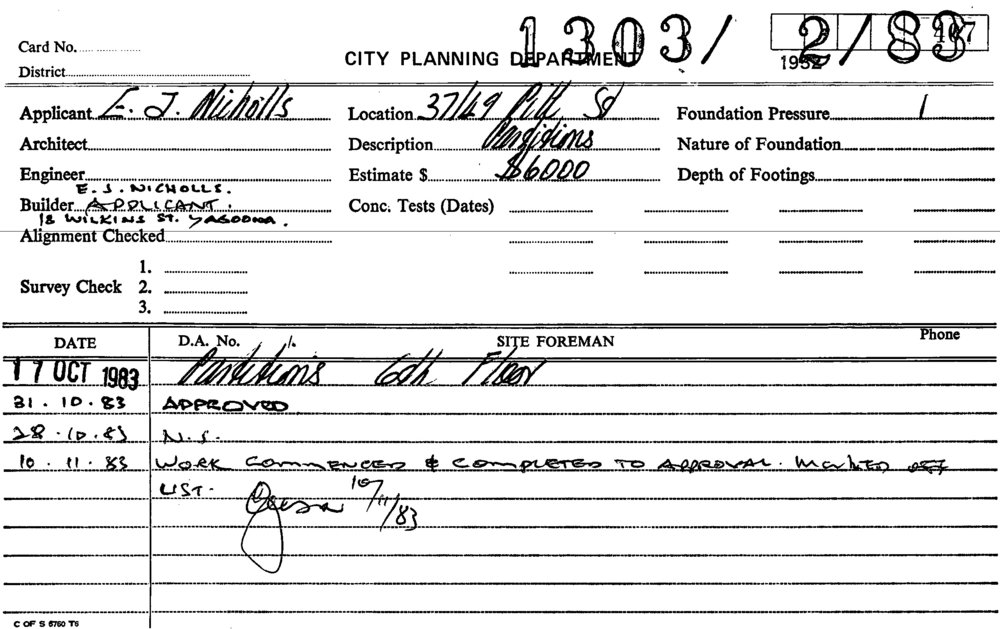 1303/ 2/83
407
1952
Card No.
CITY PLANNING DEPARTMENT
District
Applicant E. J. Nicholls Location 37/49 Pitt St Foundation Pressure
Architect Description Partitions Nature of Foundation
Engineer Estimate $ $6000 Depth of Footings
E. J. NICHOLLS.
Builder APPLICANT. Conc. Tests (Dates)
18 WILKINS ST. YAGOONA.
Alignment Checked
1.
Survey Check 2.
3.
DATE D.A. No. SITE FOREMAN Phone
17 OCT 1983 Partitions 6th Floor
31.10.83 APPROVED
28.10.83 N.S.
10.11.83 WORK COMMENCED & COMPLETED TO APPROVAL. MARKED OFF
LIST. 10/11/83
C OF S 5760 T6